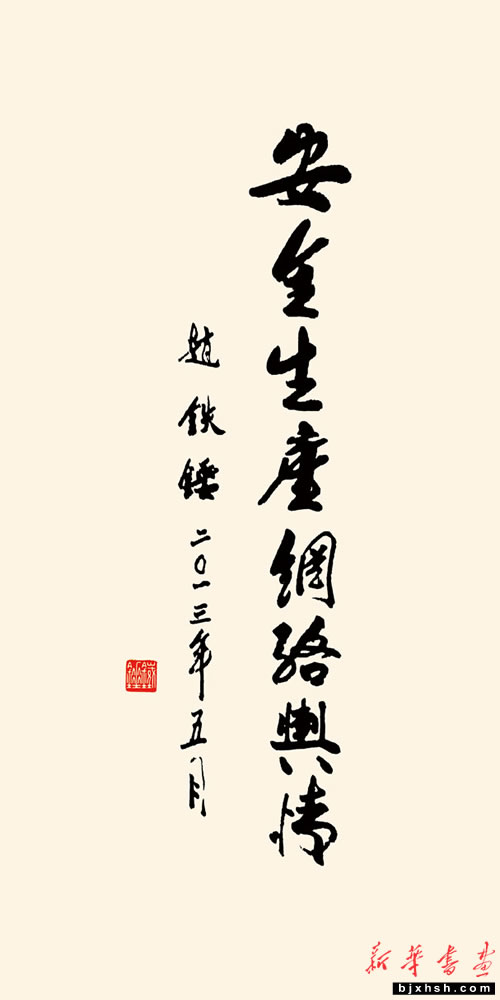 安全生産網絡輿情
趙鉄錘二〇一三年五月
新華書画
bjxhsh.com